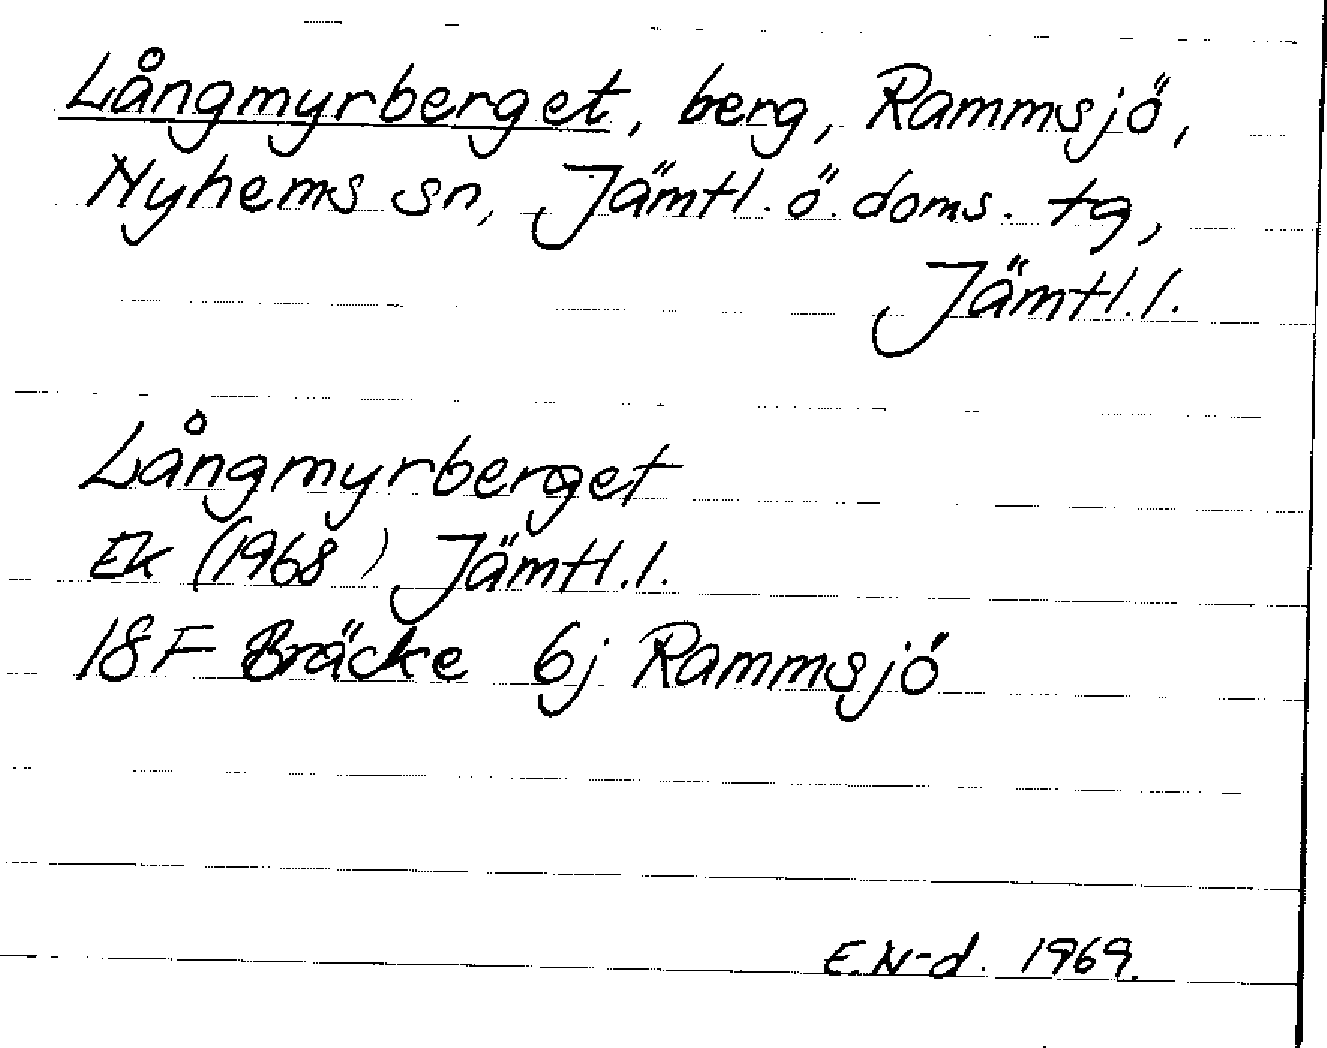 Långmyrberget, berg, Rammsjö,
Nyhems sn, Jämtl. ö. doms. tg,
Jämtl. l.
Långmyrberget
Ek (1968) Jämtl. l.
18F Bräcke 6j Rammsjö
E.N-d. 1969.